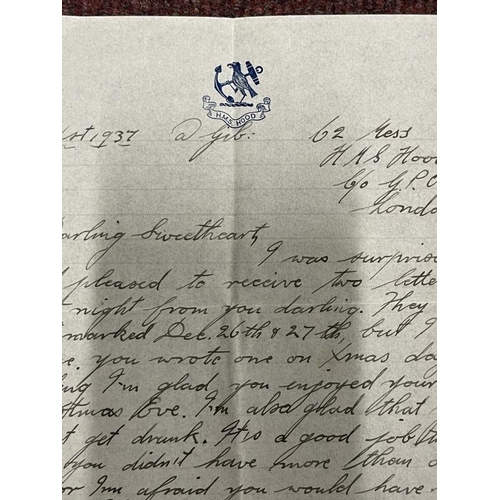 H.M.S. HOOD
1st 1937 @ Gib: 62 Mess
H M S Hood
C/o G.P.O
London
Darling Sweetheart,
I was surprise
d pleased to receive two lette
night from you darling. They
marked Dec. 26th & 27th, but I
e. you wrote one on Xmas da
ling I'm glad you enjoyed your
stmas Eve. I'm also glad that
t get drunk. It's a good job th
you didn't have more than o
or I'm afraid you would have